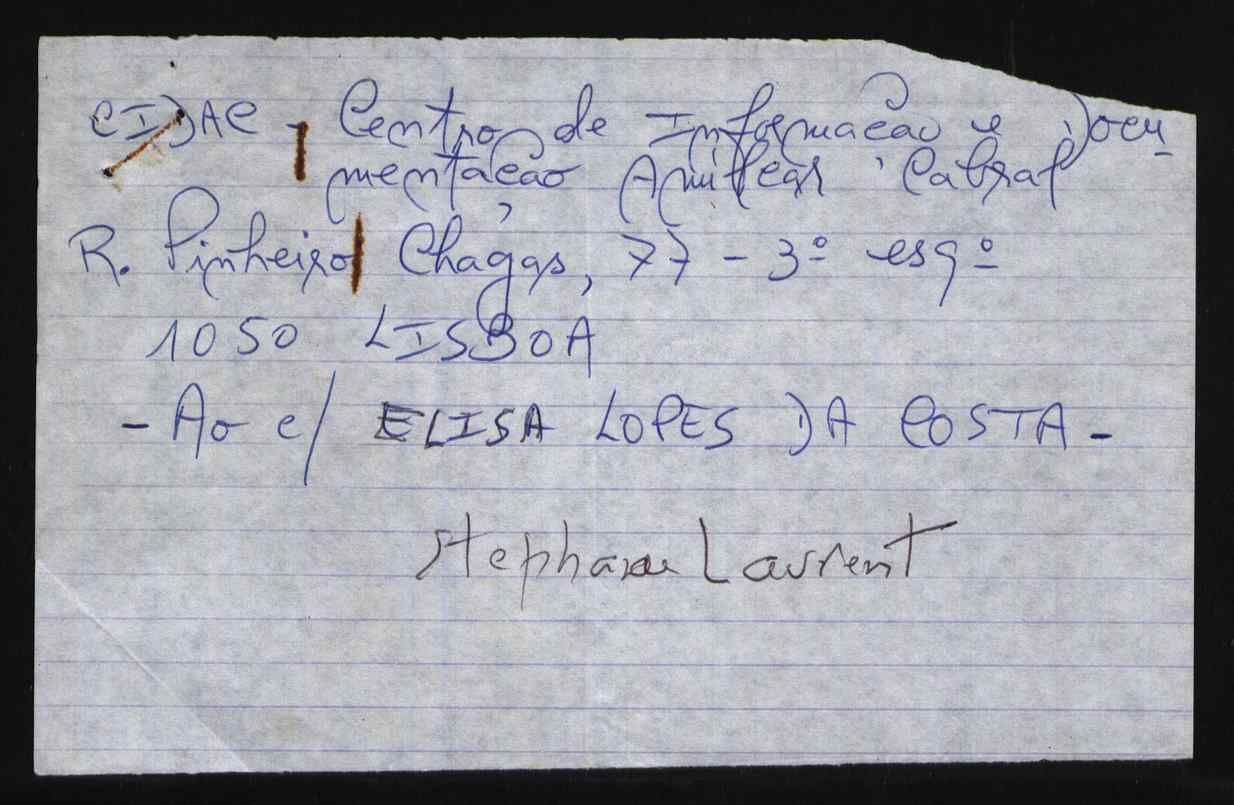 CIDAC - Centro de Informação e Docu-
mentação Amílcar Cabral
R. Pinheiro Chagas, 77 - 3º esqº
1050 LISBOA
- Ao c/ ELISA LOPES DA COSTA -
Stephane Laurent